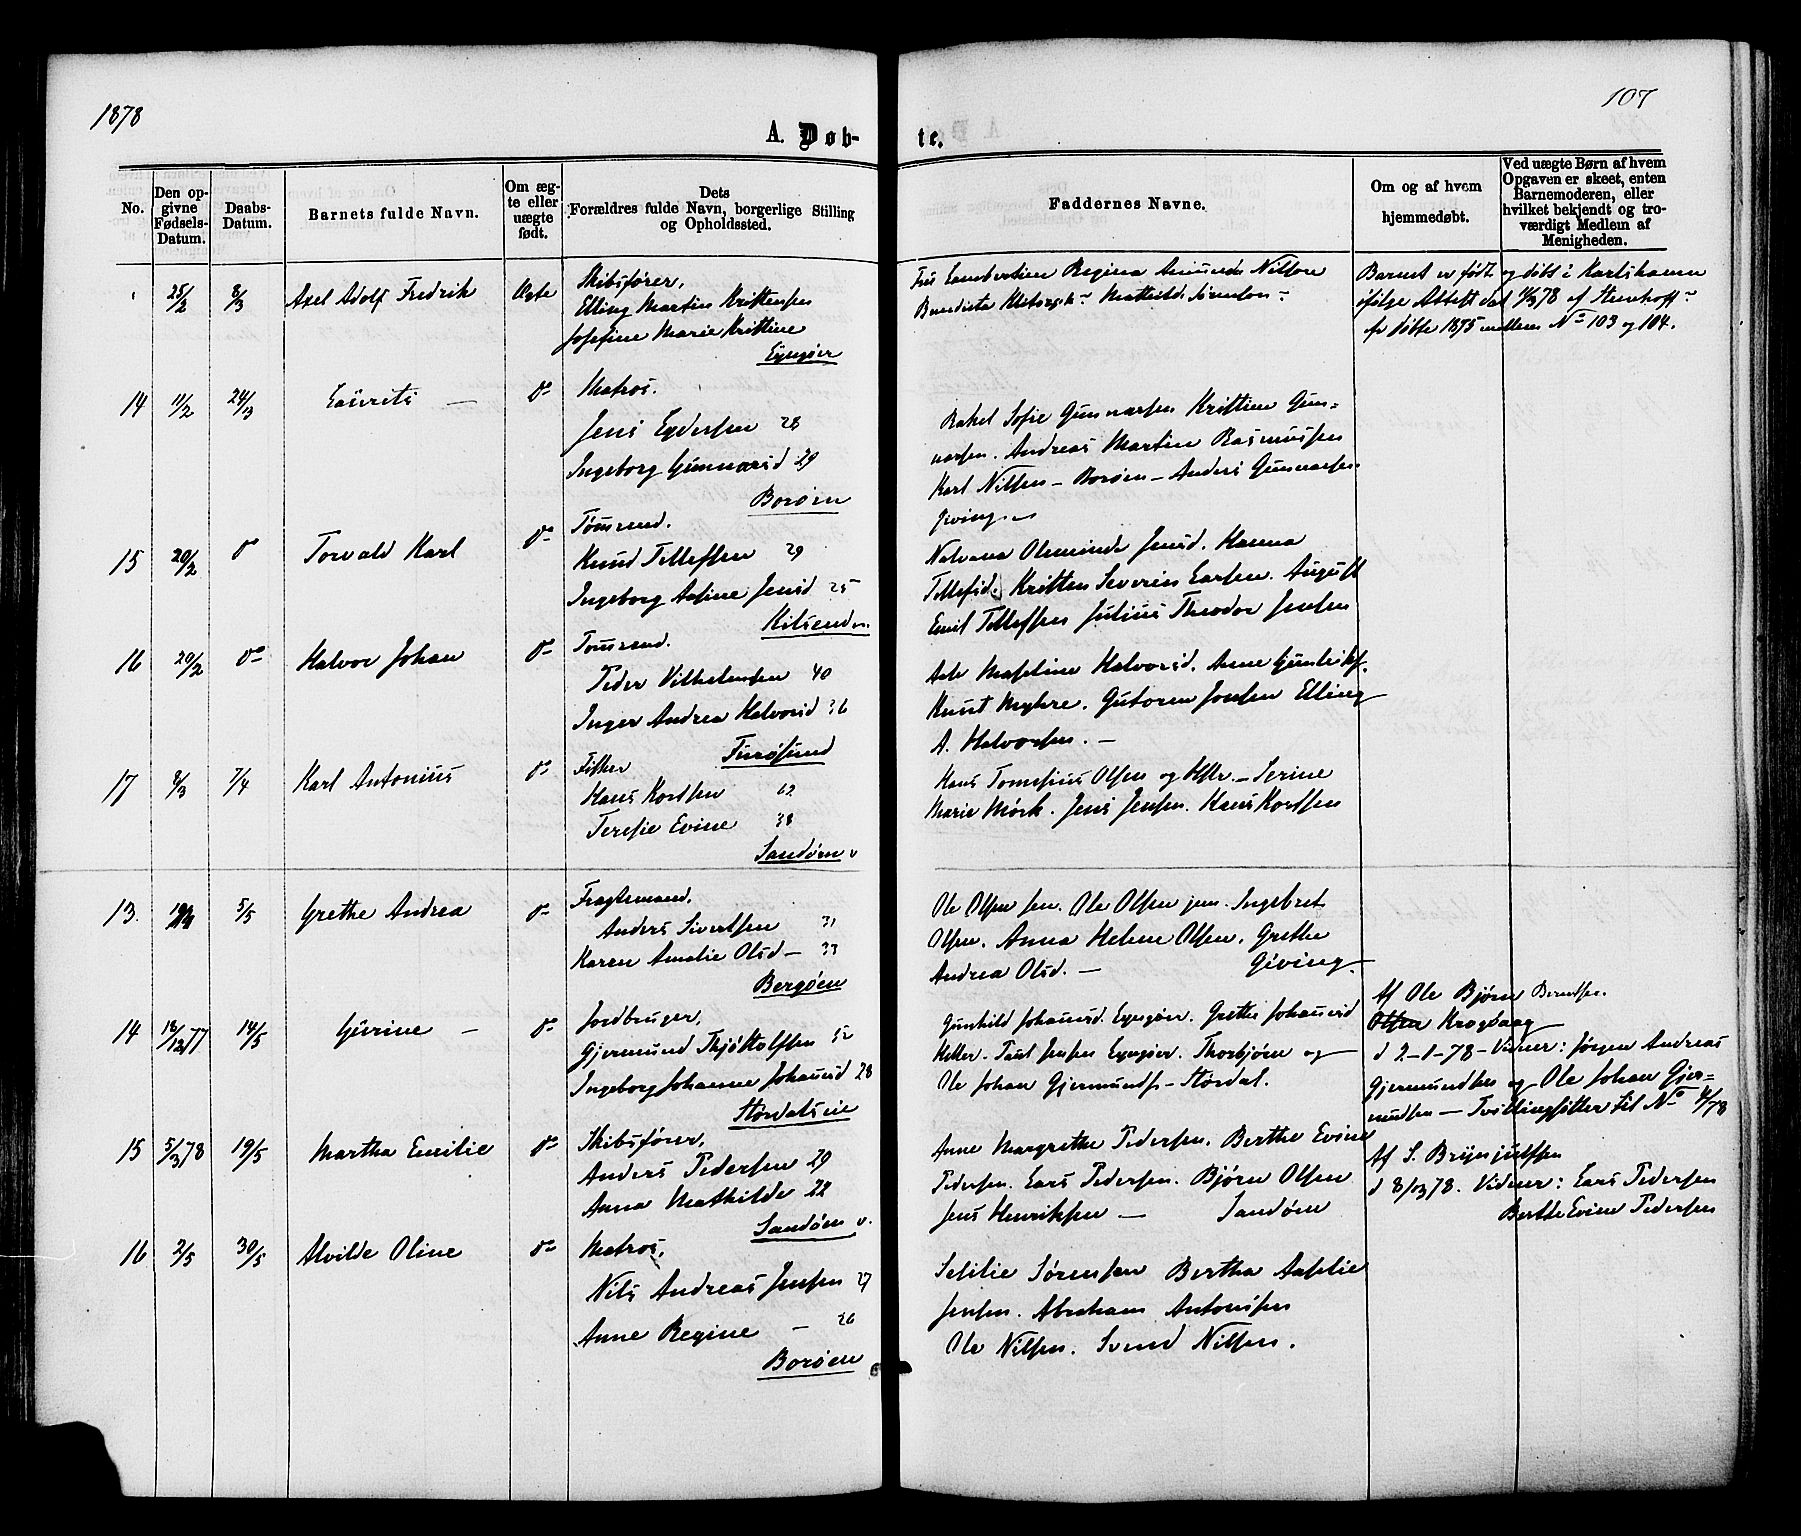 1878
107
A. Døb-
te.
No.
Den op-
givne
Fødsels-
Datum.
Daabs-
Datum.
Barnets fulde Navn.
Om æg-
te eller
uægte
født.
Dets
Forældres fulde Navn, borgerlige Stilling
og Opholdssted.
Faddernes Navne.
Om og af hvem
hjemmedøbt.
Ved uægte Børn af hvem
Opgaven er skeet, enten
Barnemoderen, eller
hvilket bekjendt og tro-
værdigt Medlem af
Menigheden.
25/2 8/3 Axel Adolf Fredrik Ægte Skibsfører,
Elling Martin Kristensen
Josefine Marie Kristine
Eyngøer
Regina Amunds Nilson
Barnet er født og døbt i Karlshamn
ifølge Attest dat 11/3 78 af
fr døbte 1875 mellem No 103 og 104.
14 11/2 24/3 Laurits — do Matros.
Jens Eydersen 28
Ingeborg Gunnarsd 29
Borøen
Rakel Sofie Gunnarsen Kristine Gun=
narsen. Andreas Martin Rasmussen
Karl Nilsen — Borøen — Anders Gunnarsen
Giving
15 20/2 do Torvald Karl do Tømrmd.
Knud Tellefsen 29
Ingeborg Aasine Jensd 25
Oleminde Jensd. Hanna
Tellefsd. Kristen Severin Larsen. August
Emil Tellefsen Julius Theodor Jensen
16 20/2 do Halvor Johan do Tømrmd.
Peder Vilhelmsen 40
Inger Andrea Halvorsd 36
Furøsund
Halvorsd. Anne
Knut Myhre. Gutorm Jensen Elling
A. Halvorsen. —
17 8/3 7/4 Karl Antonius do Fisker
Hans Kordsen 62
Teresie Evine 38
Sandøen v
Hans Tomesius Olsen og Hstr. — Serine
Marie Mörk. Jens Jensen. Hans Kordsen
13. 5/5 Grethe Andrea do Fragtemand.
Anders Sivertsen 31
Karen Amalie Olsd — 33
Bergøen
Ole Olsen sen. Ole Olsen jun. Ingebret
Olsen. Anna Helene Olsen. Grethe
Andrea Olsd. — Giving.
14 18/12 77 14/5 Gurine — do Jordbruger,
Gjermund Thjøstolfsen 52
Ingeborg Johanne Johansd 28
Størdalseie
Gunhild Johansd. Eyngøer. Grethe Johansd
Keller. Paul Jensen Eyngøer. Thorbjørn og
Ole Johan Gjermunds — Størdal.
Af Ole Bjørn Berntsen.
Olsen Krogvaag
d 2-1-78 — Vidner: Jørgen Andreas
Gjermundsen og Ole Johan Gjer=
mundsen — Tvillingsøster til No 4/78
15 5/3 78 19/5 Martha Emilie do Skibsfører,
Anders Pedersen 29
Anna Mathilde 22
Sandøen v.
Anne Margrethe Pedersen. Berthe Evine
Pedersen. Lars Pedersen. Bjørn Olsen
Jens Henriksen — Sandøen
Af S. Brynjulfsen
d 8/3 78. Vidner: Lars Pedersen
Berthe Evine Pedersen
16 2/5 30/5 Alvilde Oline do Matros,
Nils Andreas Jensen 27
Anne Regine — 26
Borøen
Sesilie Sørensen Bertha Aaselie
Jensen. Abraham Antonisen
Ole Nilsen. Svend Nilsen.